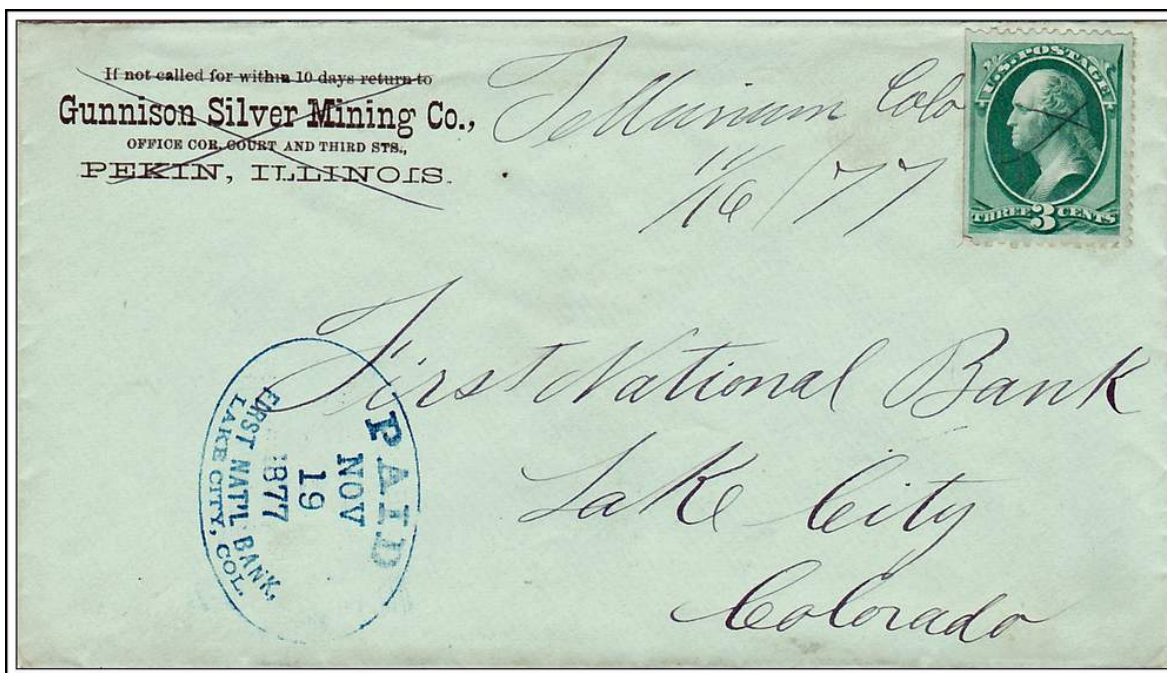 If not called for within 10 days return to
Gunnison Silver Mining Co.,
OFFICE COR. COURT AND THIRD STS.,
PEKIN, ILLINOIS.
Tellurium Colo
11/16/77
U.S. POSTAGE
THREE 3 CENTS
First National Bank
Lake City
Colorado
PAID
NOV
19
1877
FIRST NAT'L BANK,
LAKE CITY, COL.